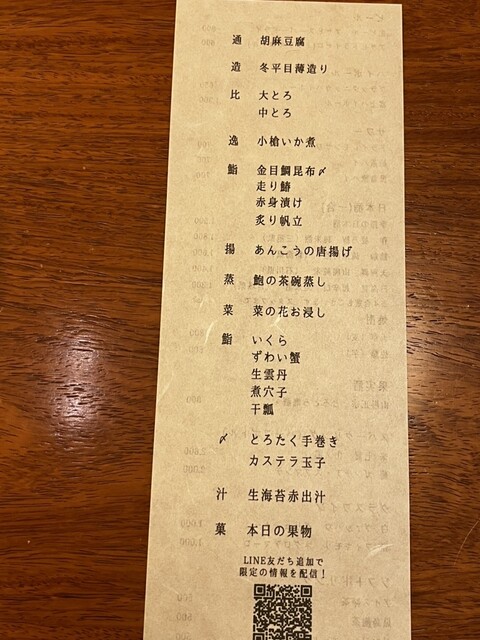 通 胡麻豆腐
造 冬平目薄造り
比 大とろ
中とろ
逸 小槍いか煮
鮨 金目鯛昆布〆
走り鰆
赤身漬け
炙り帆立
揚 あんこうの唐揚げ
蒸 鮑の茶碗蒸し
菜 菜の花お浸し
鮨 いくら
ずわい蟹
生雲丹
煮穴子
干瓢
〆 とろたく手巻き
カステラ玉子
汁 生海苔赤出汁
菓 本日の果物
LINE友だち追加で
限定の情報を配信！